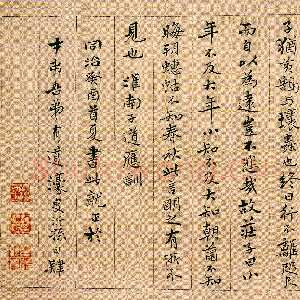 子猶黃鵠與壤蟲也終日行不離咫尺
而自以為遠豈不悲哉故莊子曰小
年不及大年小知不及大知朝菌不知
晦朔蟪蛄不知春秋此言明之有所不
見也 淮南子道應訓
同治癸酉首夏書此就正於
弟有道 濠叟沂孫 肄